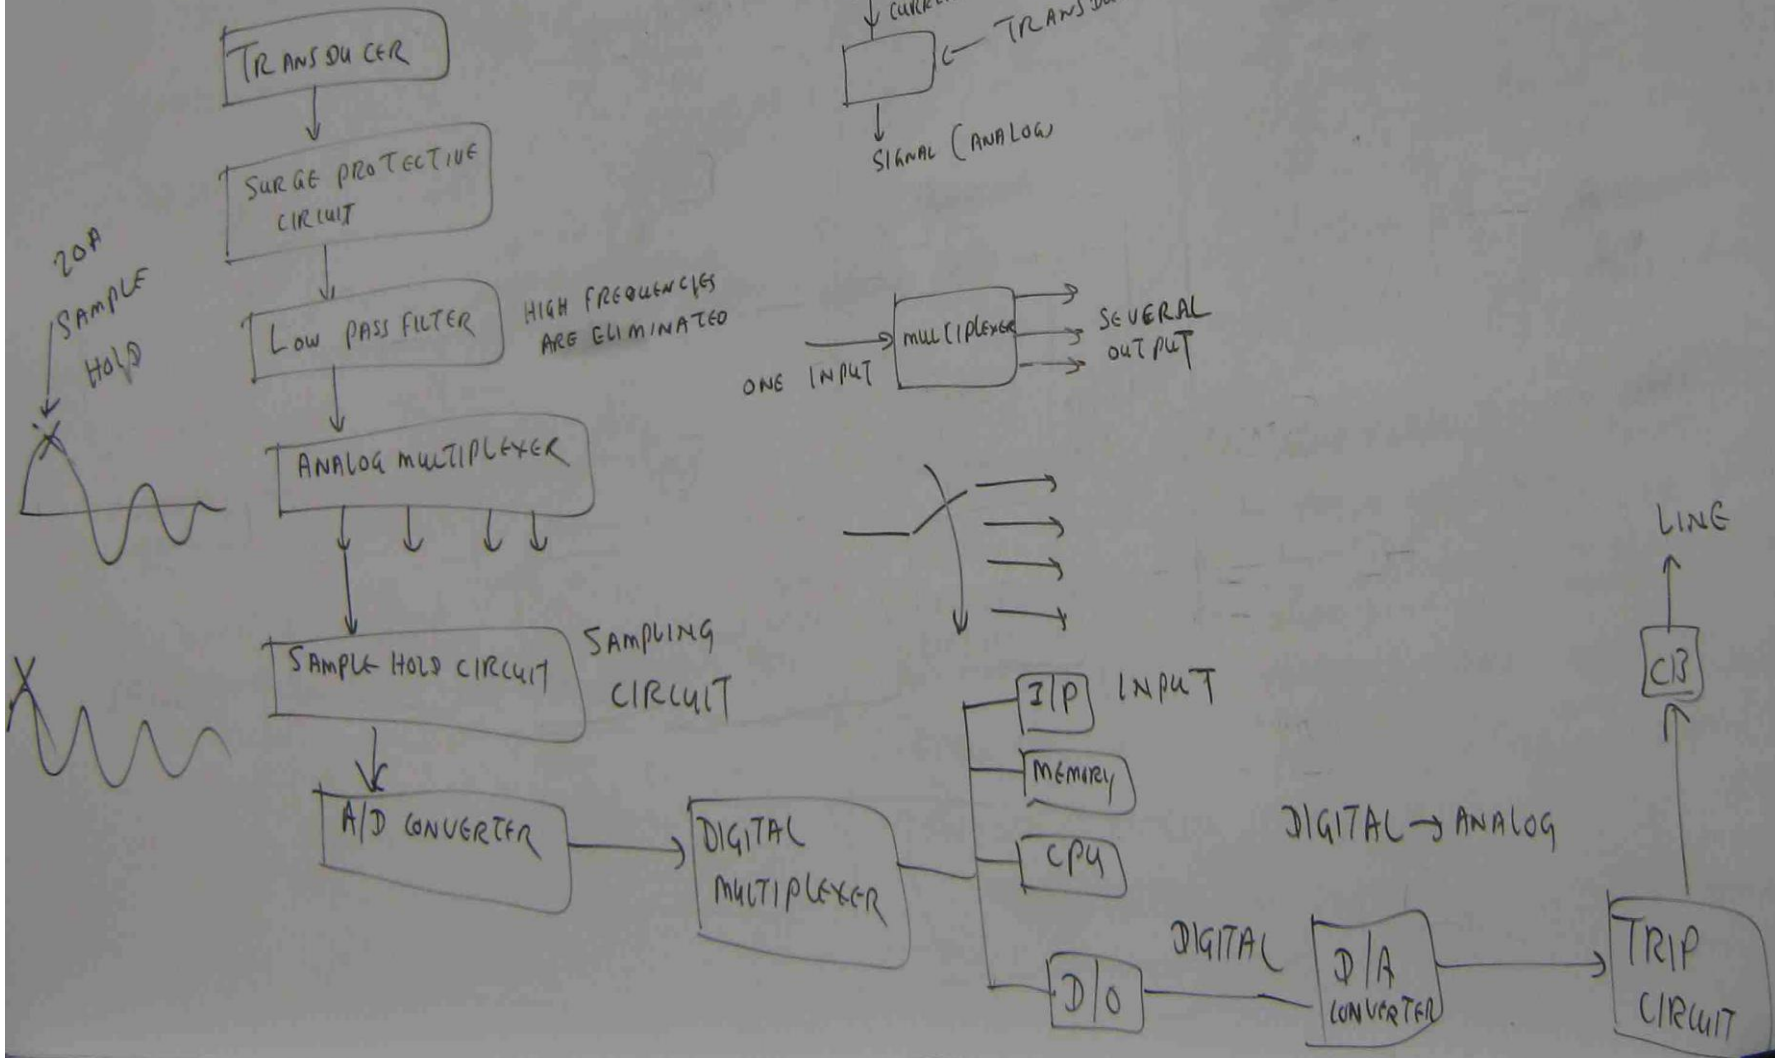 TRANSDUCER
SURGE PROTECTIVE
CIRCUIT
20A
SAMPLE
HOLD
LOW PASS FILTER
HIGH FREQUENCIES
ARE ELIMINATED
ANALOG MULTIPLEXER
SAMPLE HOLD CIRCUIT
SAMPLING
CIRCUIT
A/D CONVERTER
DIGITAL
MULTIPLEXER
SIGNAL (ANALOG)
ONE INPUT
MULTIPLEXER
SEVERAL
OUTPUT
I/P INPUT
MEMORY
CPU
D/O
DIGITAL
DIGITAL → ANALOG
D/A
CONVERTER
TRIP
CIRCUIT
CB
LINE